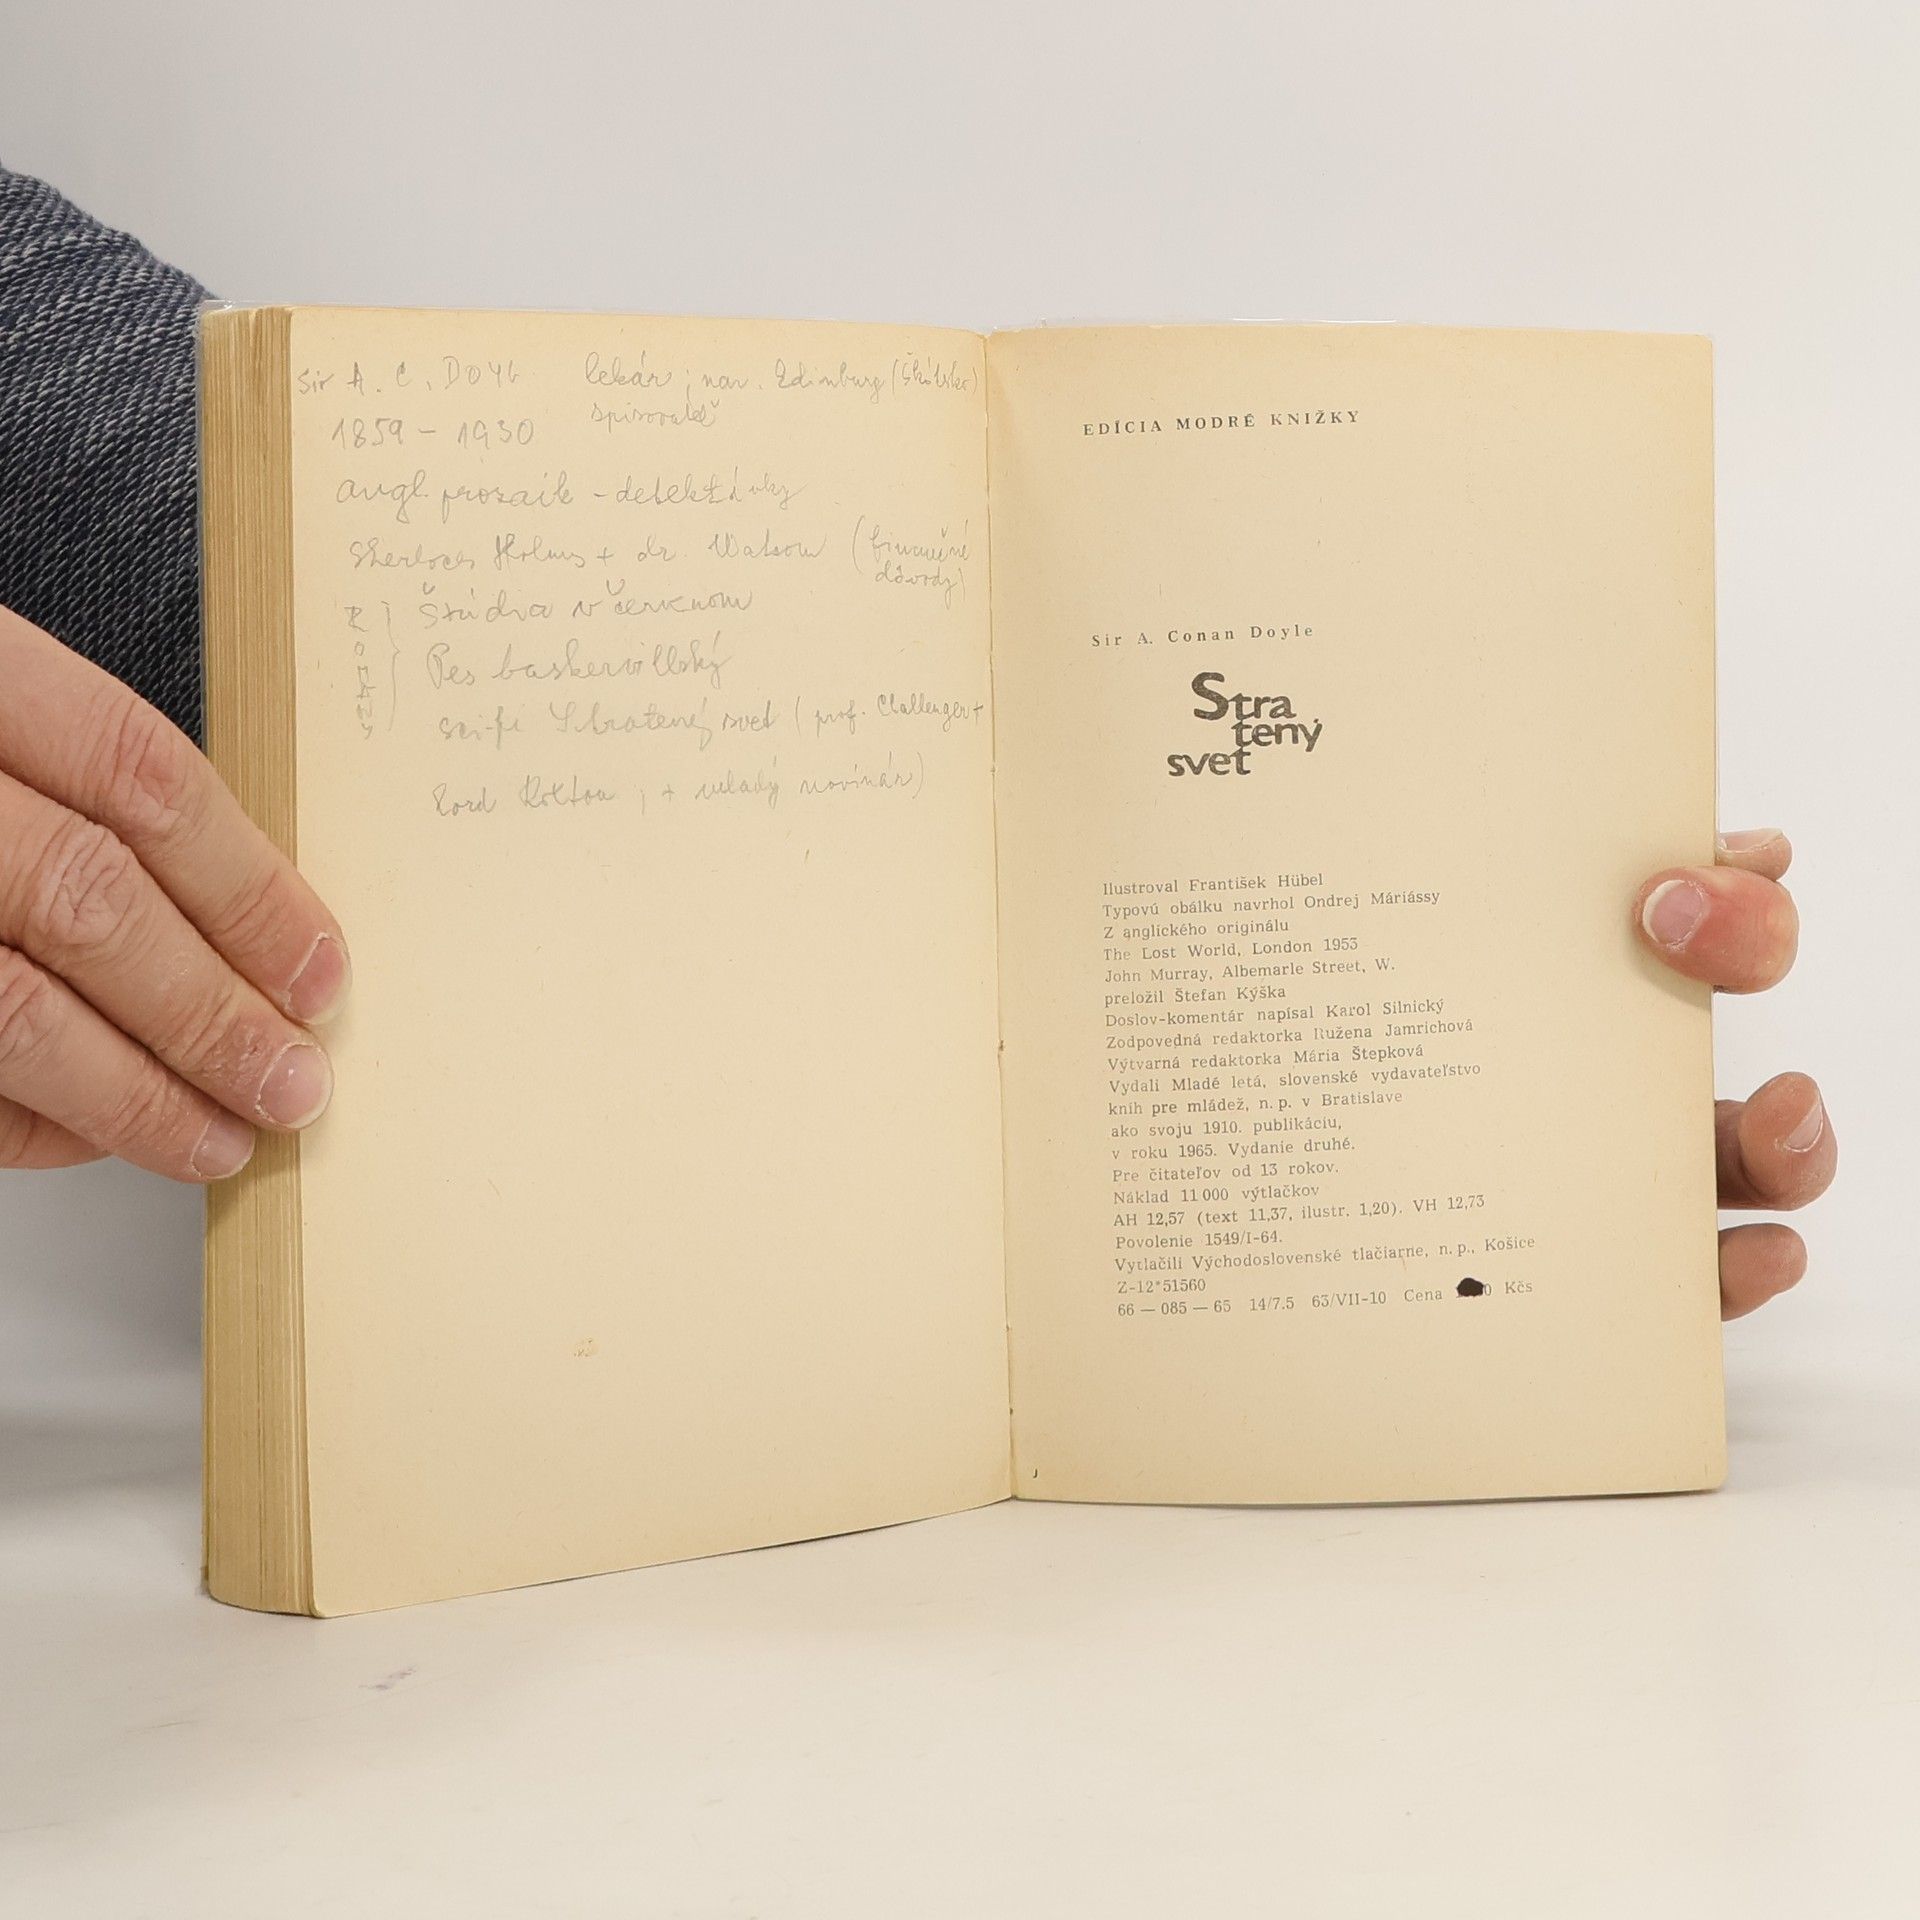 Sir A. C. DOYL lekár; nar. Edinburg (Škótsko)
spisovateľ
1859 - 1930
angl. prozaik - detektívky
Sherloces Holms + dr. Watson (finančné
dôvody)
Štúdia v červenom
ROMÁNY
Pes baskervillský
sci-fi Stratený svet (prof. Challenger +
Lord Roxton ; + mladý novinár)
EDÍCIA MODRÉ KNIŽKY
Sir A. Conan Doyle
Stra
tený
svet
Ilustroval František Hübel
Typovú obálku navrhol Ondrej Máriássy
Z anglického originálu
The Lost World, London 1953
John Murray, Albemarle Street, W.
preložil Štefan Kýška
Doslov-komentár napísal Karol Silnický
Zodpovedná redaktorka Ružena Jamrichová
Výtvarná redaktorka Mária Štepková
Vydali Mladé letá, slovenské vydavateľstvo
kníh pre mládež, n. p. v Bratislave
ako svoju 1910. publikáciu,
v roku 1965. Vydanie druhé.
Pre čitateľov od 13 rokov.
Náklad 11 000 výtlačkov
AH 12,57 (text 11,37, ilustr. 1,20). VH 12,73
Povolenie 1549/I-64.
Vytlačili Východoslovenské tlačiarne, n. p., Košice
Z-12*51560
66 — 085 — 65 14/7.5 63/VII-10 Cena Kčs